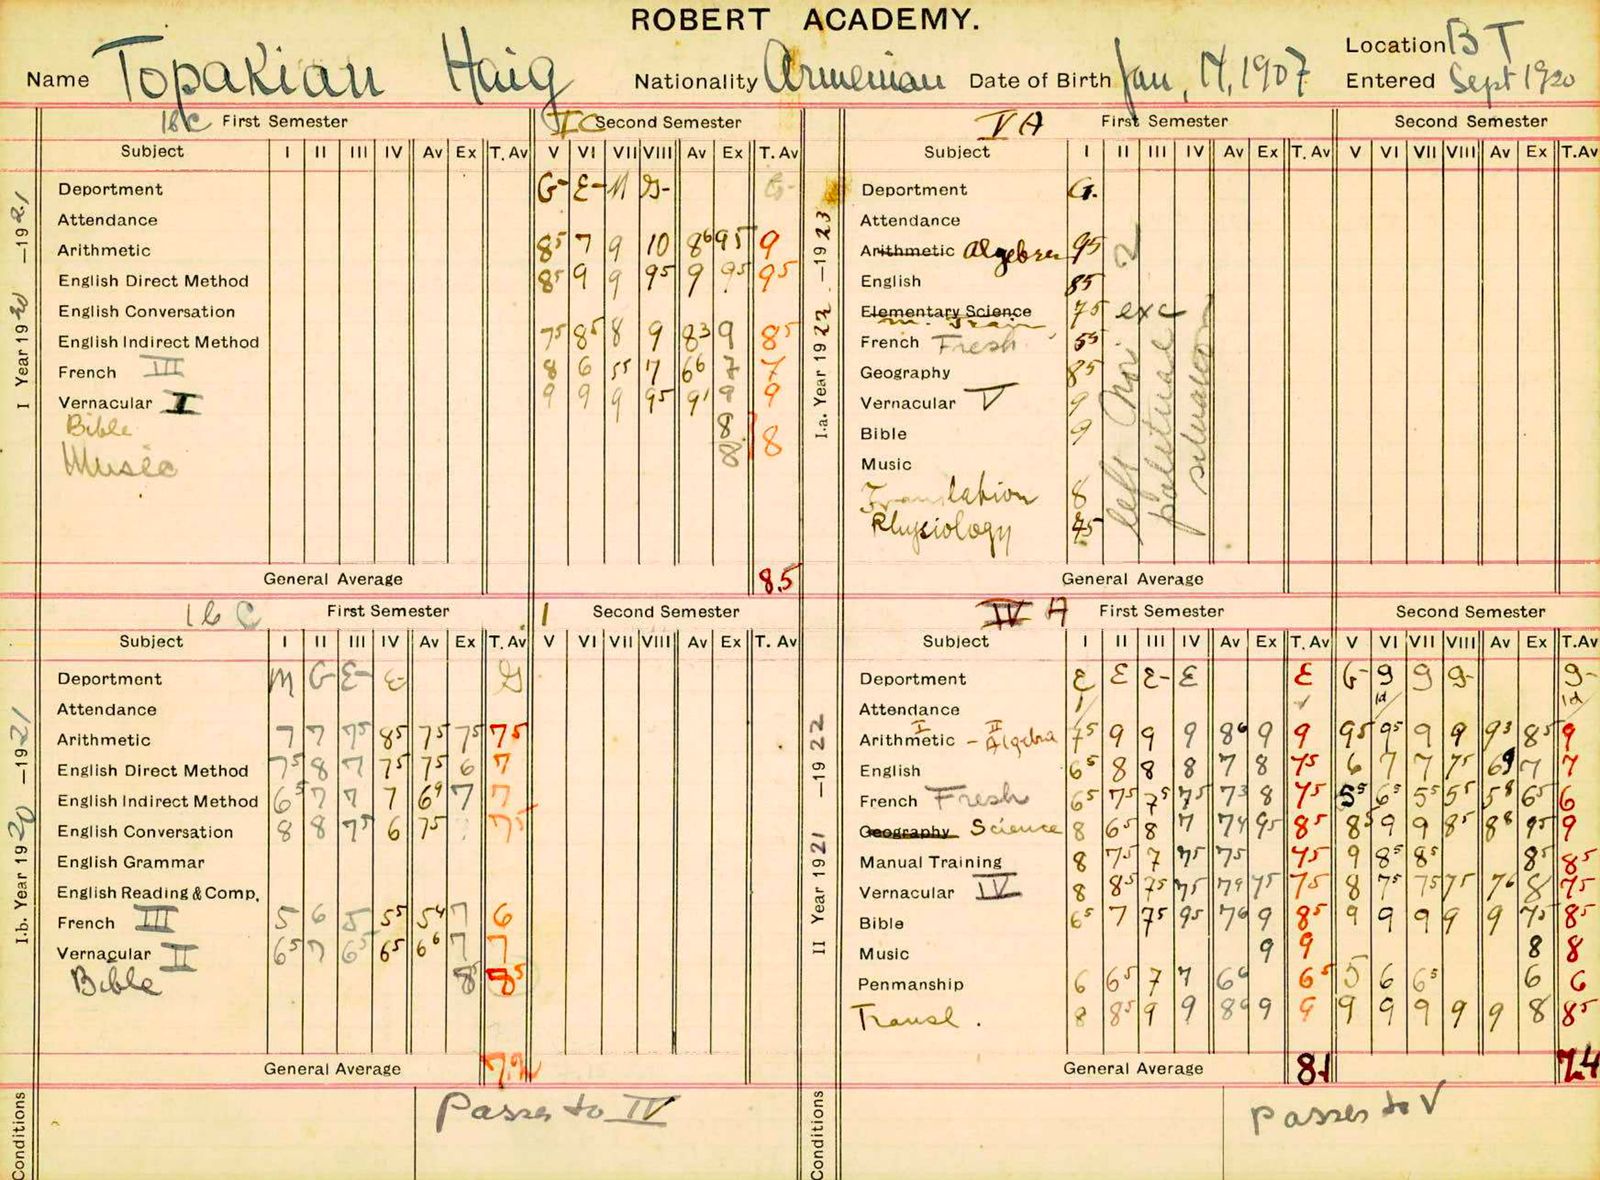 ROBERT ACADEMY.
Location BT
Name Topakian Haig Nationality Armenian Date of Birth Jan, 14, 1907 Entered Sept 1920
I Year 1920 —1921
IbC First Semester IC Second Semester
Subject I II III IV Av Ex T. Av V VI VII VIII Av Ex T. Av
Deportment G- E- M G- G-
Attendance
Arithmetic 8⁵ 7 9 10 8⁶ 9⁵ 9
English Direct Method 8⁵ 9 9 9⁵ 9 9⁵ 9⁵
English Conversation
English Indirect Method 7⁵ 8⁵ 8 9 8³ 9 8⁵
French III 8 6 5⁵ 7 6⁶ 7 7
Vernacular I 9 9 9 9⁵ 9¹ 9 9
Bible 8
Music 8 8
General Average 8.5
I.b. Year 1920 —1921
Ib C First Semester I Second Semester
Subject I II III IV Av Ex T. Av V VI VII VIII Av Ex T. Av
Deportment M G- E- E- G
Attendance
Arithmetic 7 7 7⁵ 8⁵ 7⁵ 7⁵ 7⁵
English Direct Method 7⁵ 8 7 7⁵ 7⁵ 6 7
English Indirect Method 6⁵ 7 7 7 6⁹ 7 7
English Conversation 8 8 7⁵ 6 7⁵ 7⁵
English Grammar
English Reading & Comp,
French III 5 6 5 5⁵ 5⁴ 7 6
Vernacular II 6⁵ 7 6⁵ 6⁵ 6⁶ 7 7
Bible 8⁵ 8⁵
General Average 7.2
Conditions Passes to IV
I.a. Year 1922 —1923
V A First Semester Second Semester
Subject I II III IV Av Ex T. Av V VI VII VIII Av Ex T.Av
Deportment G.
Attendance
Arithmetic Algebra 9⁵
English 8⁵
Elementary Science 7⁵ exc
m. Train
French Fresh 5⁵
Geography 8⁵
Vernacular V 9
Bible 9
Music
Translation 8
Physiology 7⁵
left
General Average
II Year 1921 —1922
IV A First Semester Second Semester
Subject I II III IV Av Ex T. Av V VI VII VIII Av Ex T.Av
Deportment E E E- E E G- g g g- g-
Attendance 1/ 1d/ 1d/
Arithmetic I - II Algebra 7⁵ 9 9 9 8⁶ 9 9 9⁵ 9⁵ 9 9 9³ 8⁵ 9
English 6⁵ 8 8 8 7 8 7⁵ 6 7 7 7⁵ 6⁹ 7 7
French Fresh 6⁵ 7⁵ 7⁵ 7⁵ 7³ 8 7⁵ 5⁵ 6⁵ 5⁵ 5⁵ 5⁸ 6⁵ 6
Geography Science 8 6⁵ 8 7 7⁴ 9⁵ 8⁵ 8⁵ 9 9 8⁵ 8⁸ 9⁵ 9
Manual Training 8 7⁵ 7 7⁵ 7⁵ 7⁵ 9 8⁵ 8⁵ 8⁵ 8⁵
Vernacular IV 8 8⁵ 7⁵ 7⁵ 7⁹ 7⁵ 7⁵ 8 7⁵ 7⁵ 7⁵ 7⁶ 8 7⁵
Bible 6⁵ 7 7⁵ 9⁵ 7⁶ 9 8⁵ 9 9 9 9 9 7⁵ 8⁵
Music 9 9 8 8
Penmanship 6 6⁵ 7 7 6⁶ 6⁵ 5 6 6⁵ 6 6
Transl. 8 8⁵ 9 9 8⁶ 9 9 9 9 9 9 9 8 8⁵
General Average 8.1 7.4
Conditions passes to V